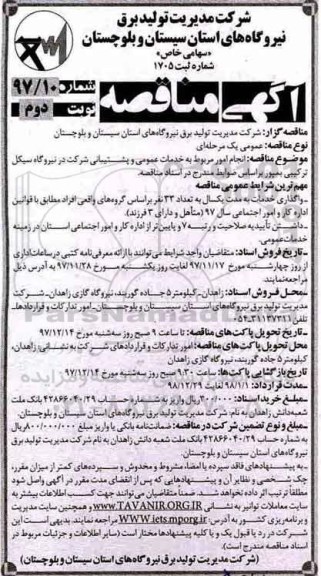 شرکت مدیریت تولید برق
نیروگاه‌های استان سیستان و بلوچستان
«سهامی خاص»
شماره ثبت ۱۷۰۵
آگهی مناقصه
شماره ۹۷/۱۰
نوبت دوم
مناقصه گزار: شرکت مدیریت تولید برق نیروگاه‌های استان سیستان و بلوچستان
نوع مناقصه: عمومی یک مرحله‌ای
موضوع مناقصه: انجام امور مربوط به خدمات عمومی و پشتیبانی شرکت در نیروگاه سیکل
ترکیبی بمپور براساس ضوابط مندرج در اسناد مناقصه.
مهم‌ترین شرایط عمومی مناقصه
ـ واگذاری خدمات به مدت یکسال به تعداد ۳۳ نفر براساس گروه‌های واقعی افراد مطابق با قوانین
اداره کار و امور اجتماعی سال ۹۷ (متأهل و دارای ۲ فرزند).
ـ داشتن تأییدیه صلاحیت و رتبه ۷ و پایین‌تر از اداره کار و امور اجتماعی استان در زمینه
خدمات عمومی.
ـ تاریخ فروش اسناد: متقاضیان واجد شرایط می‌توانند با ارائه معرفی‌نامه کتبی در ساعات اداری
از روز چهارشنبه مورخ ۹۷/۱۱/۱۷ لغایت روز یکشنبه مورخ ۹۷/۱۱/۲۸ به آدرس ذیل
مراجعه نمایند.
ـ محل فروش اسناد: زاهدان ـ کیلومتر ۵ جاده گوربند، نیروگاه گازی زاهدان ـ شرکت
مدیریت تولید برق نیروگاه‌های استان سیستان و بلوچستان ـ امور تدارکات و قراردادها ـ
تلفن ۰۵۴۳۱۱۳۷۳۱۱
ـ تاریخ تحویل پاکت‌های مناقصه: تا ساعت ۹ صبح روز سه‌شنبه مورخ ۹۷/۱۲/۱۴
محل تحویل پاکت‌های مناقصه: امور تدارکات و قراردادهای شرکت به نشانی زاهدان،
کیلومتر ۵ جاده گوربند، نیروگاه گازی زاهدان
تاریخ بازگشایی پاکت‌ها: ساعت ۹:۳۰ صبح روز سه‌شنبه مورخ ۹۷/۱۲/۱۴
ـ مدت قرارداد: ۹۸/۱/۱ لغایت ۹۸/۱۲/۲۹
ـ مبلغ خرید اسناد: ۳۰۰/۰۰۰ ریال واریز به شماره حساب ۴۲۸۶۶۰۴۰/۲۹ بانک ملت
شعبه دانش زاهدان به نام شرکت مدیریت تولید برق نیروگاه‌های استان سیستان و بلوچستان.
ـ مبلغ و نوع تضمین شرکت در مناقصه: ضمانت‌نامه بانکی یا واریز مبلغ ۸۰۰/۰۰۰/۰۰۰ ریال
به شماره حساب ۴۲۸۶۶۰۴۰/۲۹ بانک ملت شعبه دانش زاهدان به نام شرکت مدیریت تولید برق
نیروگاه‌های استان سیستان و بلوچستان.
ـ به پیشنهادهای فاقد سپرده یا امضاء، مشروط و مخدوش و سپرده‌های کمتر از میزان مقرر،
چک شخصی و نظایر آن و پیشنهادهایی که پس از انقضای مدت مقرر در آگهی واصل شود
مطلقاً ترتیب اثر داده نخواهد شد. ضمناً متقاضیان می‌توانند جهت کسب اطلاعات بیشتر به
سایت معاملات توانیر به نشانی WWW.TAVANIR.ORG.IR و همچنین سایت مدیریت
و برنامه‌ریزی کشور به آدرس: WWW.iets.mporg.ir مراجعه نمایند. بدیهی است این
شرکت در رد یا قبول یک و یا کلیه پیشنهادها مختار است (سایر اطلاعات و جزئیات مربوط در
اسناد مناقصه مندرج است).
(شرکت مدیریت تولید برق نیروگاه‌های استان سیستان و بلوچستان)